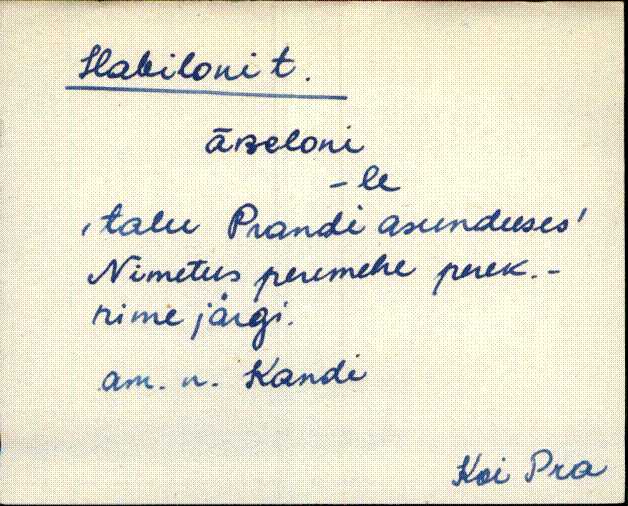 Habiloni t.
-le
'talu Prandi asunduses'
Nimetus peremehe perek.-
nime järgi.
am. n. Kandi
Koi Pra